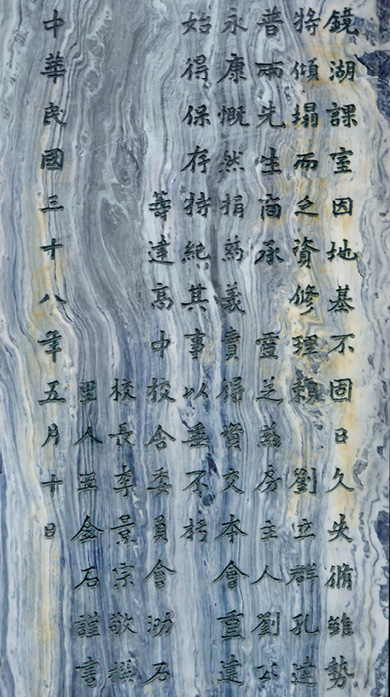 鏡湖課室因地基不固日久失脩雖勢
將傾塌而乏資修理賴 劉立群孔達
普兩先生商承 靈芝葯房主人劉公
永康慨然捐葯義賣得資交本會重建
始得保存特紀其事以垂不朽
達高中校舍委員會泐石
校長李景宗敬撰
里人金石謹書
中華民國三十八年五月十日